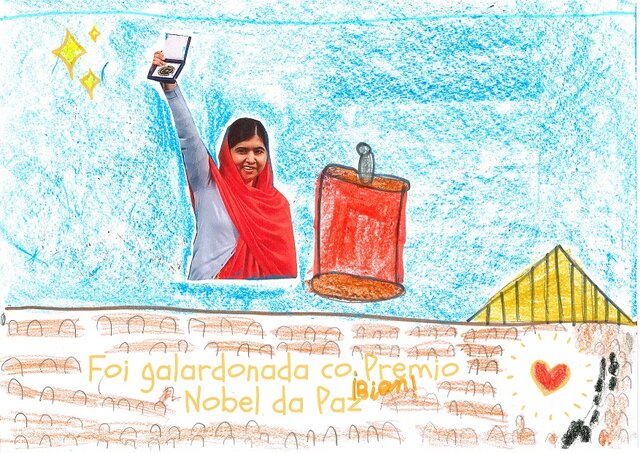 Foi galardonada co Premio
Nobel da Paz
¡Bien!